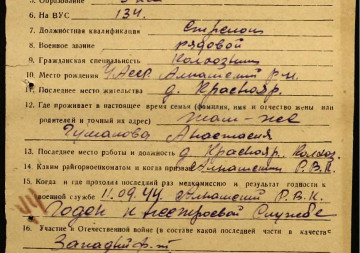 5. Образование
6. На ВУС 134.
7. Должностная квалификация стрелок
8. Военное звание рядовой
9. Гражданская специальность Колхозник
10. Место рождения УАССР Алнашский р-н
11. Последнее место жительства д. Краснояр.
12. Где проживает в настоящее время семья (фамилия, имя и отчество жены или
родителей и точный их адрес) там-же
Туманова Анастасия
13. Последнее место работы и должность д. Краснояр. Колхоз.
14. Каким райгорвоенкоматом и когда призван Алнашский Р.В.К.
15. Когда и где проходил последний раз медкомиссии и результат годности к
военной службе 11.09.44. Алнашский Р.В.К.
Годен к нестроевой службе
16. Участие в Отечественной войне (в составе какой последней части в качестве
Западный ф-т